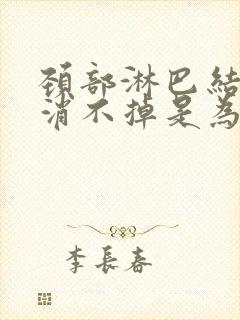 頚部淋巴結
消不掉是為
李長春